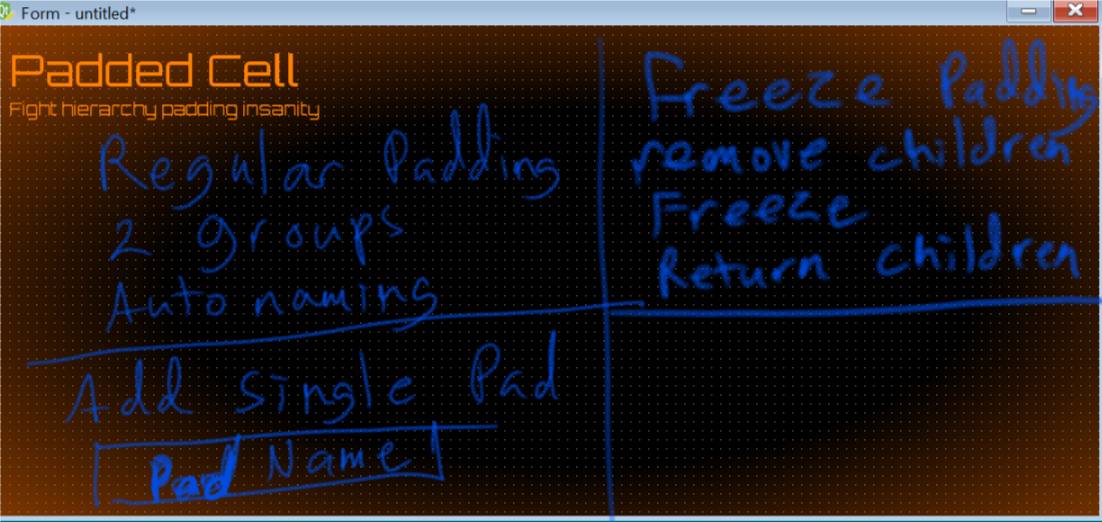 Form - untitled*
Padded Cell
Fight hierarchy padding insanity
Regular Padding
2 groups
Auto naming
Add single Pad
Pad Name
Freeze Padding
remove children
Freeze
Return children